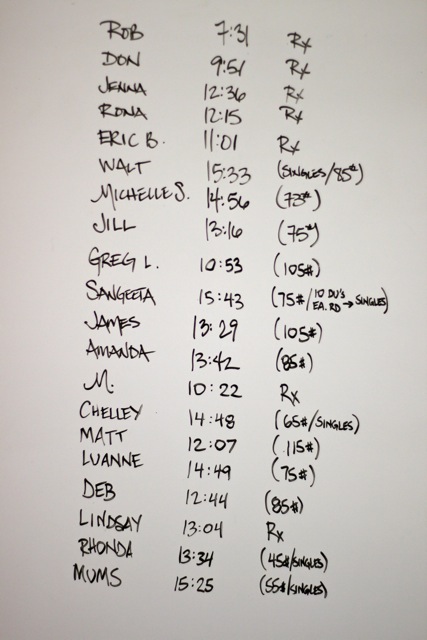 ROB 7:31 Rx
DON 9:51 Rx
JENNA 12:36 Rx
RONA 12:15 Rx
ERIC B. 11:01 Rx
WALT 15:33 (SINGLES/85#)
MICHELLE S. 14:56 (73#)
JILL 13:16 (75#)
GREG L. 10:53 (105#)
SANGEETA 15:43 (75#/10 DU'S EA. RD → SINGLES)
JAMES 13:29 (105#)
AMANDA 13:42 (85#)
M. 10:22 Rx
CHELLEY 14:48 (65#/SINGLES)
MATT 12:07 (115#)
LUANNE 14:49 (75#)
DEB 12:44 (85#)
LINDSAY 13:04 Rx
RHONDA 13:34 (45#/SINGLES)
MUMS 15:25 (55#/SINGLES)